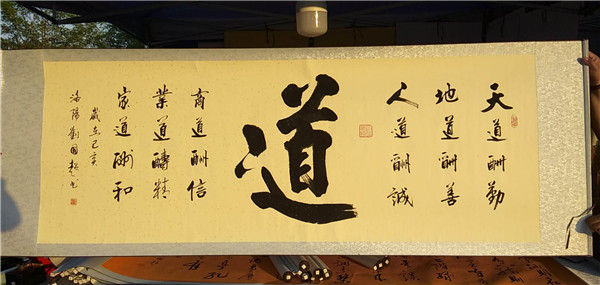 天道酬勤
地道酬善
人道酬誠
道
商道酬信
業道醻精
家道酬和
歲在己亥
洛陽劉國